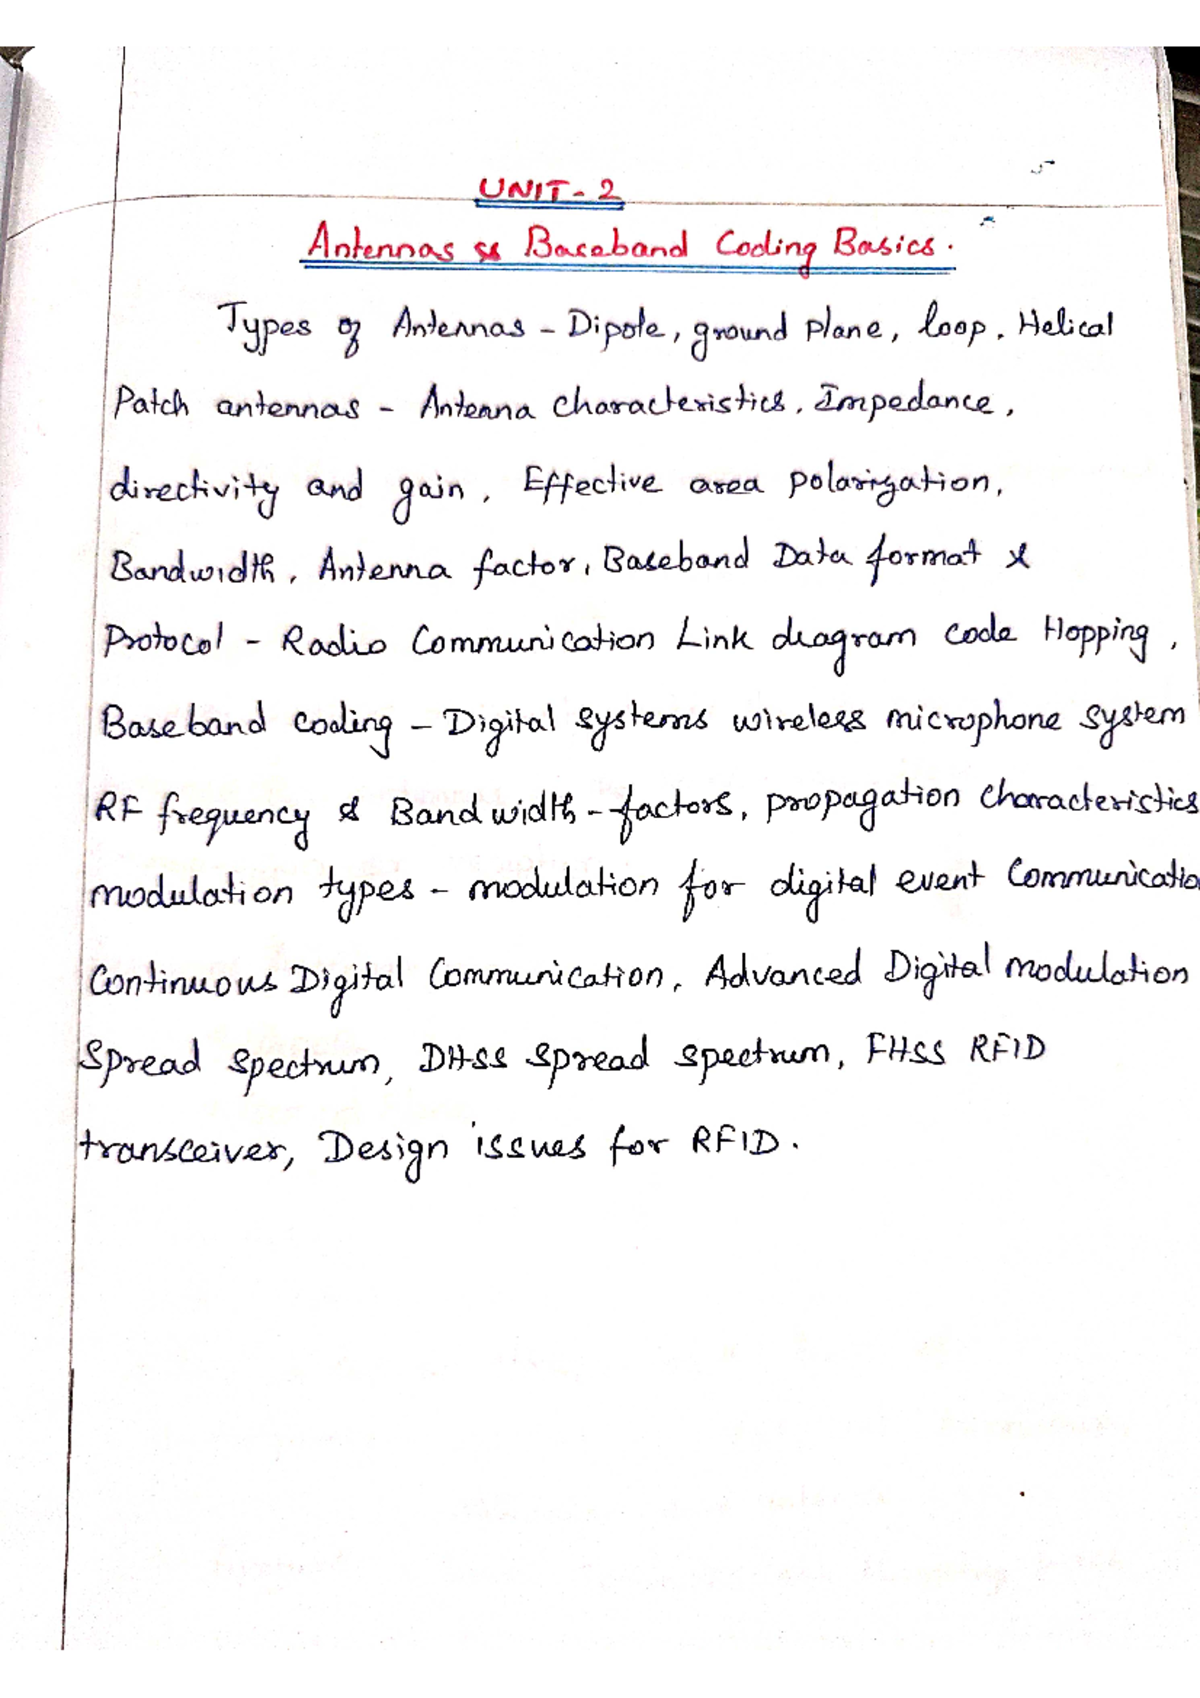 UNIT-2
Antennas & Baseband Coding Basics.
Types of Antennas - Dipole, ground plane, loop, Helical
Patch antennas - Antenna characteristics, Impedance,
directivity and gain, Effective area polarization,
Bandwidth, Antenna factor, Baseband Data format &
Protocol - Radio Communication Link diagram code Hopping,
Baseband coding - Digital systems wireless microphone system
RF frequency & Bandwidth - factors, propagation characteristics
modulation types - modulation for digital event Communicatio
Continuous Digital Communication, Advanced Digital modulation
Spread spectrum, DHSS Spread spectrum, FHSS RFID
transceiver, Design issues for RFID.